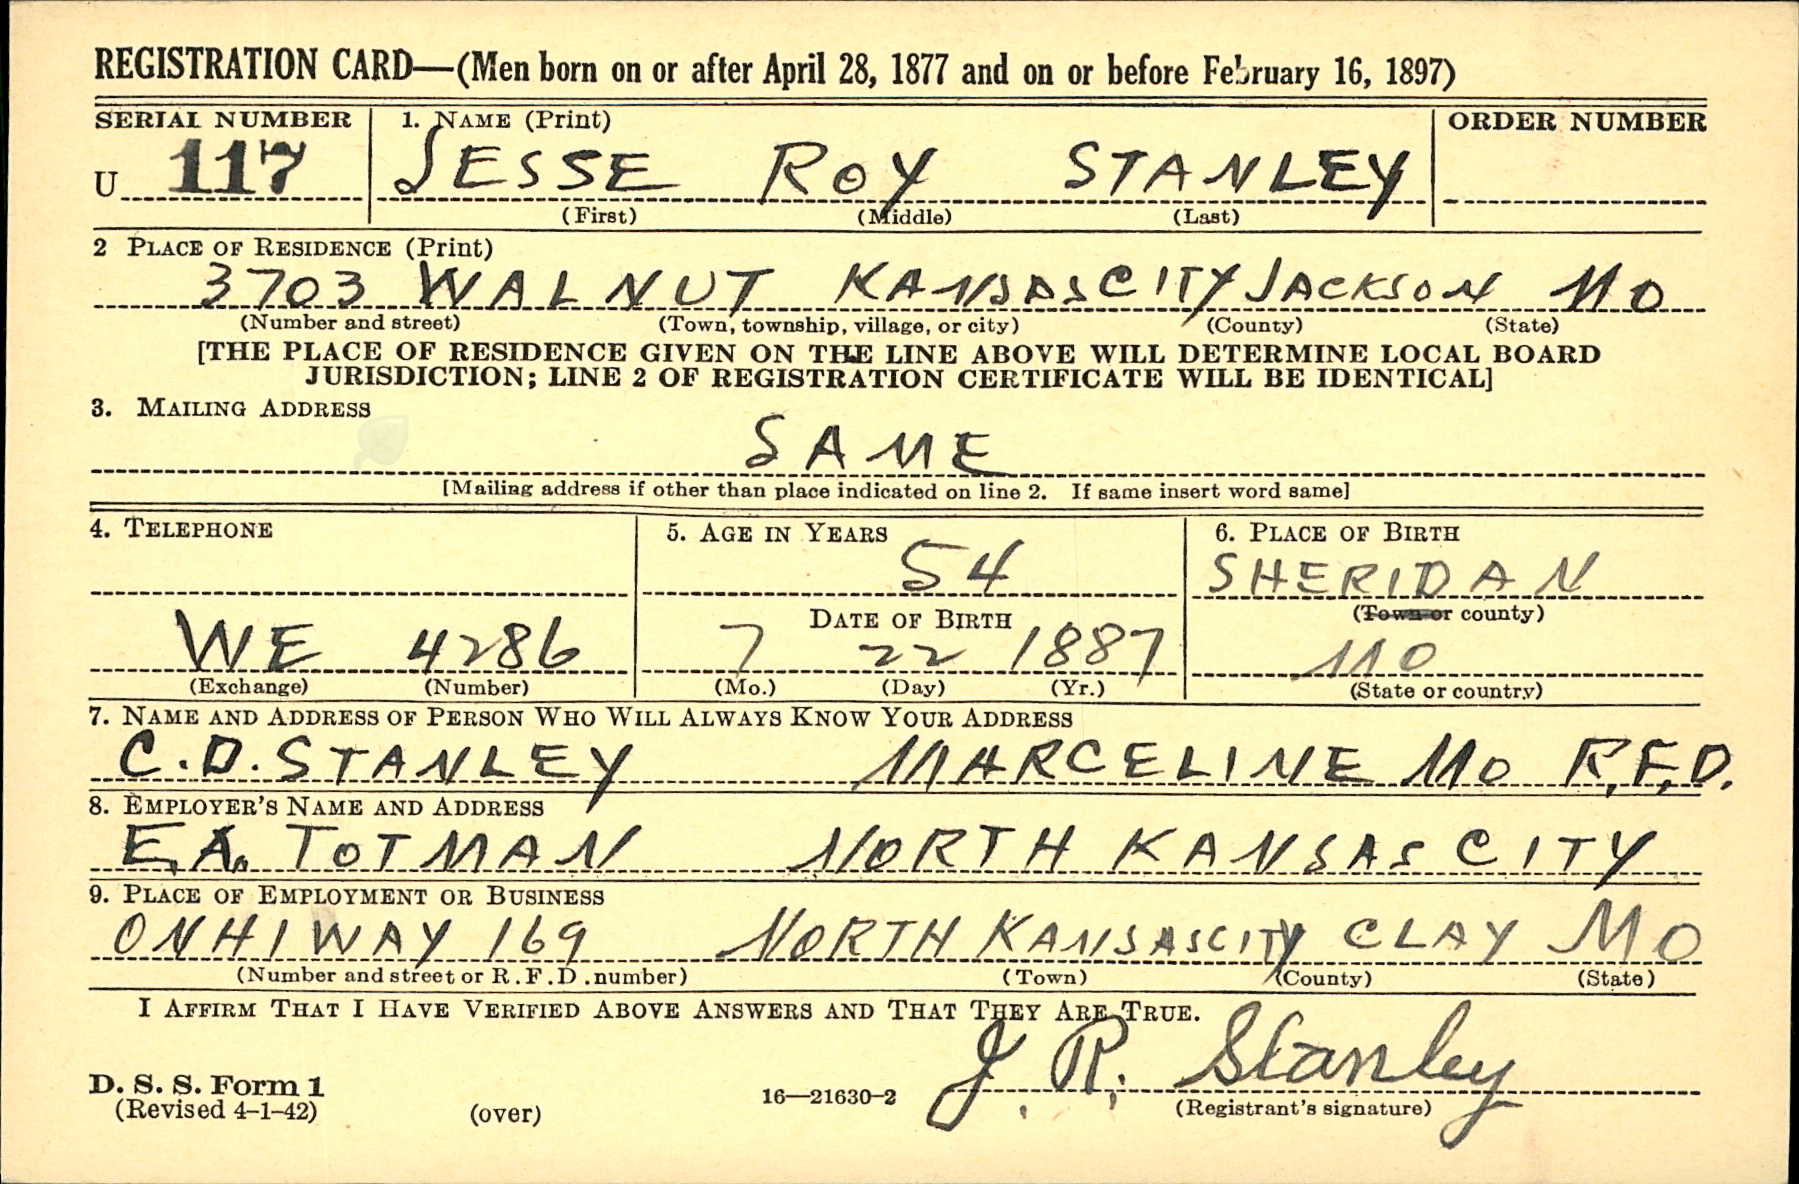 REGISTRATION CARD—(Men born on or after April 28, 1877 and on or before February 16, 1897)
SERIAL NUMBER 1. NAME (Print) ORDER NUMBER
U 117 JESSE ROY STANLEY
(First) (Middle) (Last)
2 PLACE OF RESIDENCE (Print)
3703 WALNUT KANSAS CITY JACKSON MO
(Number and street) (Town, township, village, or city) (County) (State)
[THE PLACE OF RESIDENCE GIVEN ON THE LINE ABOVE WILL DETERMINE LOCAL BOARD
JURISDICTION; LINE 2 OF REGISTRATION CERTIFICATE WILL BE IDENTICAL]
3. MAILING ADDRESS
SAME
[Mailing address if other than place indicated on line 2. If same insert word same]
4. TELEPHONE 5. AGE IN YEARS 6. PLACE OF BIRTH
54 SHERIDAN
DATE OF BIRTH (Town or county)
WE 4286 7 22 1887 MO
(Exchange) (Number) (Mo.) (Day) (Yr.) (State or country)
7. NAME AND ADDRESS OF PERSON WHO WILL ALWAYS KNOW YOUR ADDRESS
C.D. STANLEY MARCELINE MO R.F.D.
8. EMPLOYER'S NAME AND ADDRESS
E.A. TOTMAN NORTH KANSAS CITY
9. PLACE OF EMPLOYMENT OR BUSINESS
ON HIWAY 169 NORTH KANSAS CITY CLAY MO
(Number and street or R.F.D. number) (Town) (County) (State)
I AFFIRM THAT I HAVE VERIFIED ABOVE ANSWERS AND THAT THEY ARE TRUE.
J. R. Stanley
D. S. S. Form 1
(Revised 4-1-42) (over) 16—21630-2 (Registrant's signature)